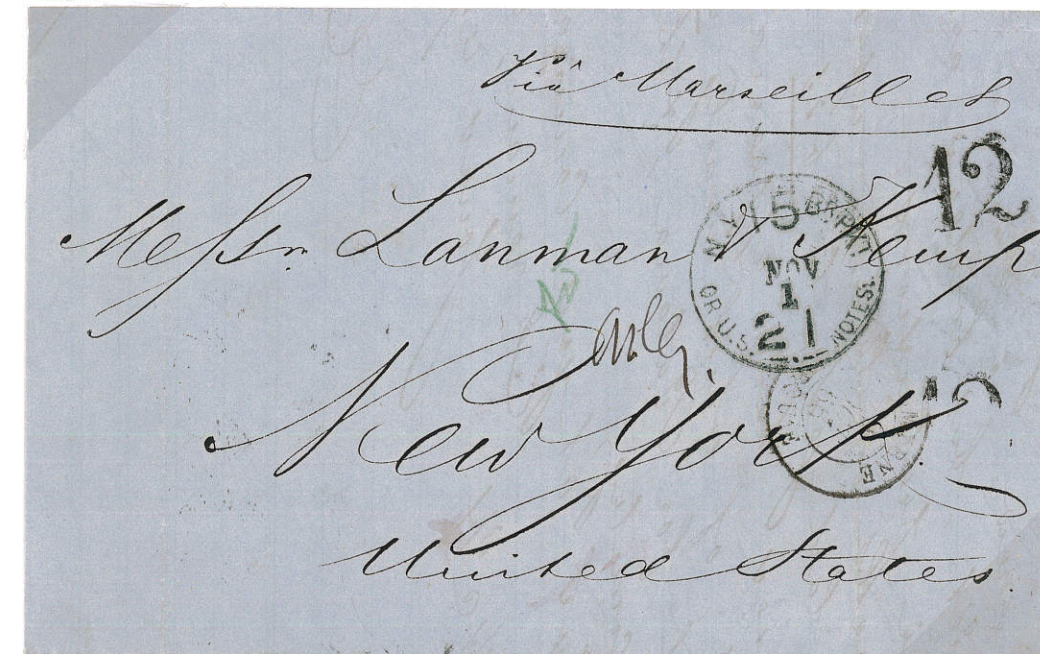 Viâ Marseilles
12
Messrs. Lanman & Kemp
N.Y. 15 BR. PKT.
NOV
1
21
OR U.S. NOTES.
New York.
12
United States.